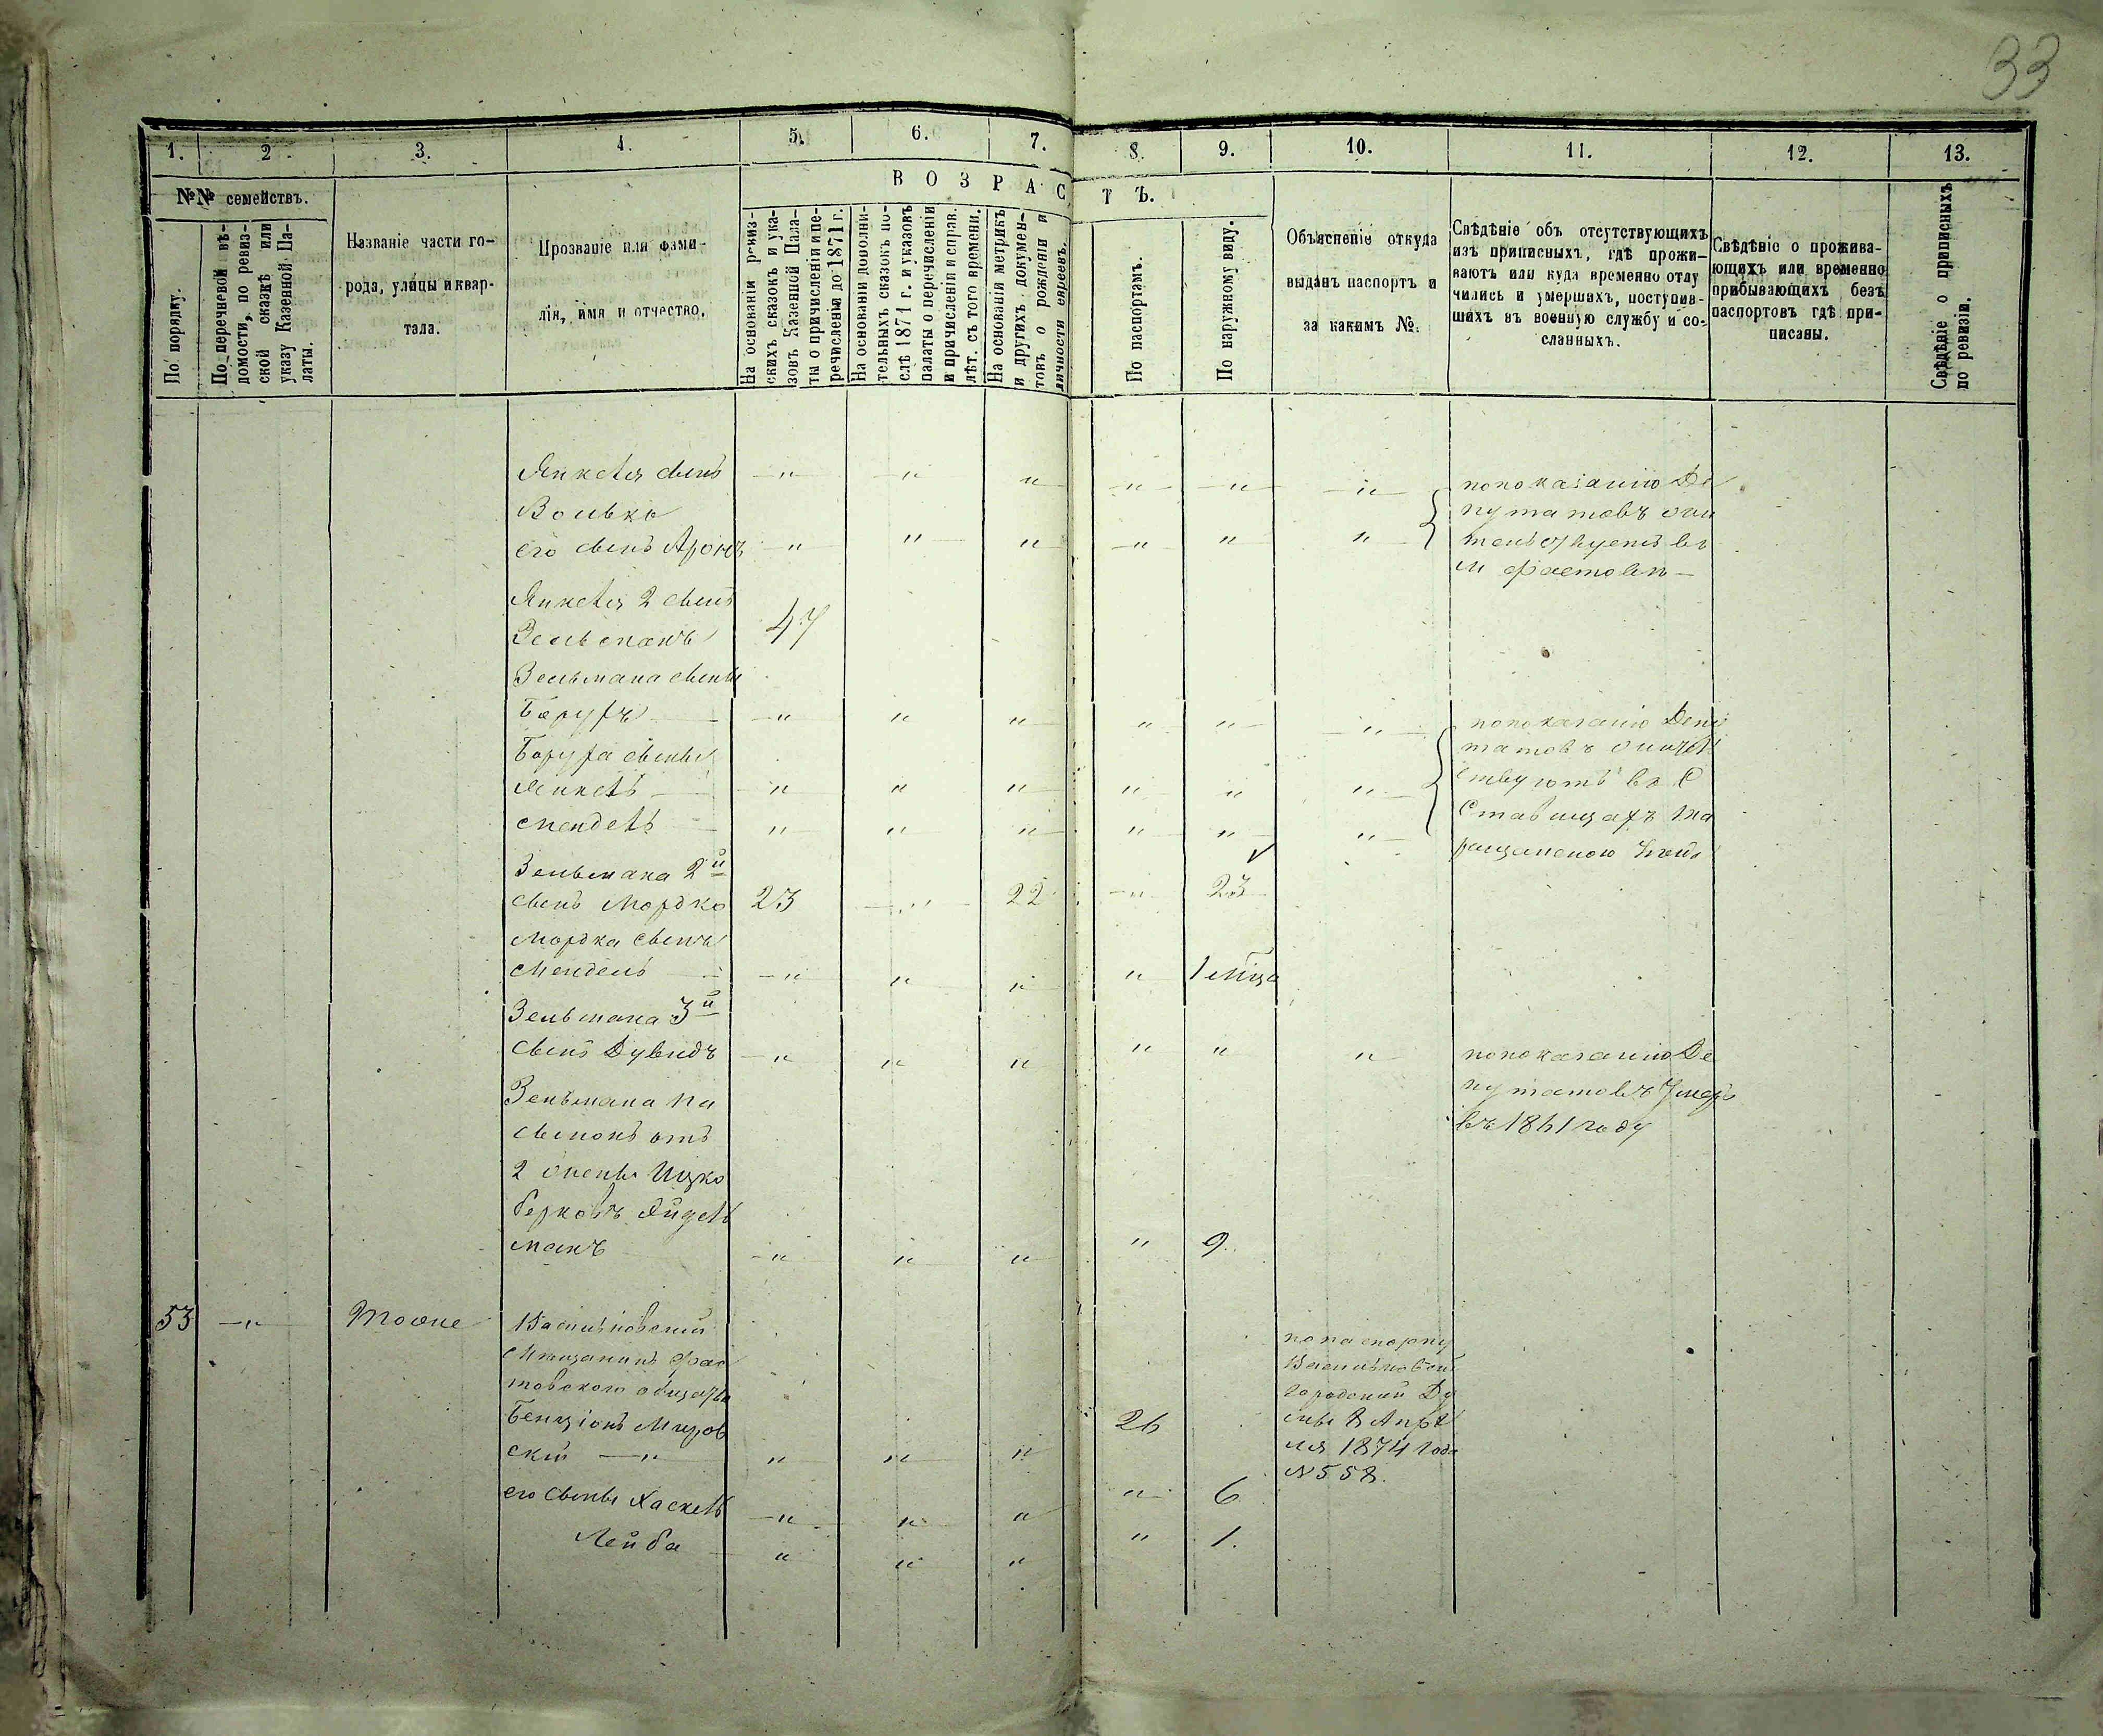 33
1. 2. 3. 4. 5. 6. 7. 8. 9. 10. 11. 12. 13.
№№ семействъ.
По порядку.
По перечневой вѣ-
домости, по ревиз-
ской сказкѣ или
указу Казенной Па-
латы.
Названіе части го-
рода, улицы и квар-
тала.
Прозваніе или фами-
лія, имя и отчество.
ВОЗРАСТЪ.
На основаніи ревиз-
скихъ сказокъ и ука-
зовъ Казенной Пала-
ты о причисленіи и пе-
речислены до 1871 г.
На основаніи дополни-
тельныхъ сказокъ по-
слѣ 1871 г. и указовъ
палаты о перечисленіи
и причисленіи и справ.
лѣт. съ того времени.
На основаніи метрикъ
и другихъ докумен-
товъ о рожденіи и
личности евреевъ.
По паспортамъ.
По наружному виду.
Объясненіе откуда
выданъ паспортъ и
за какимъ №.
Свѣдѣніе объ отсутствующихъ
изъ приписныхъ, гдѣ прожи-
ваютъ или куда временно отлу
чились и умершихъ, поступив-
шихъ въ военную службу и со-
сланныхъ.
Свѣдѣніе о прожива-
ющихъ или временно
прибывающихъ безъ
паспортовъ гдѣ при-
писаны.
Свѣдѣніе о приписныхъ
по ревизіи.
Янкеля сынъ
Волько
его сынъ Аронъ
по показанію Де
путатовъ
въ
м Фастовѣ
Янкеля 2 сынъ
Зельманъ 47
Зельмана сыны
Борухъ
Боруха сыны
Янкель
Мендель
по показанію Депу
татовъ
ствуютъ въ С
Ставищахъ Та
ращанскою
Зельмана 2й
сынъ Мордко 23 22 23
Мордка сынъ
Мендель 1 мѣца
Зельмана 3й
сынъ Дувидъ
по показанію Де
путатовъ Умеръ
въ 1861 году
Зельмана па
сынокъ отъ
2 жены Ицко
Берковъ
манъ 9
53 Тоже
Васильковскій
Мѣщанинъ Фас
товского общества
Бенціонъ Миров
скій 26
по паспорту
Васильковской
городской Ду
мы 8 Апрѣ
ля 1874 года
№ 558.
его сыны Хаскель 6
Лейба 1.